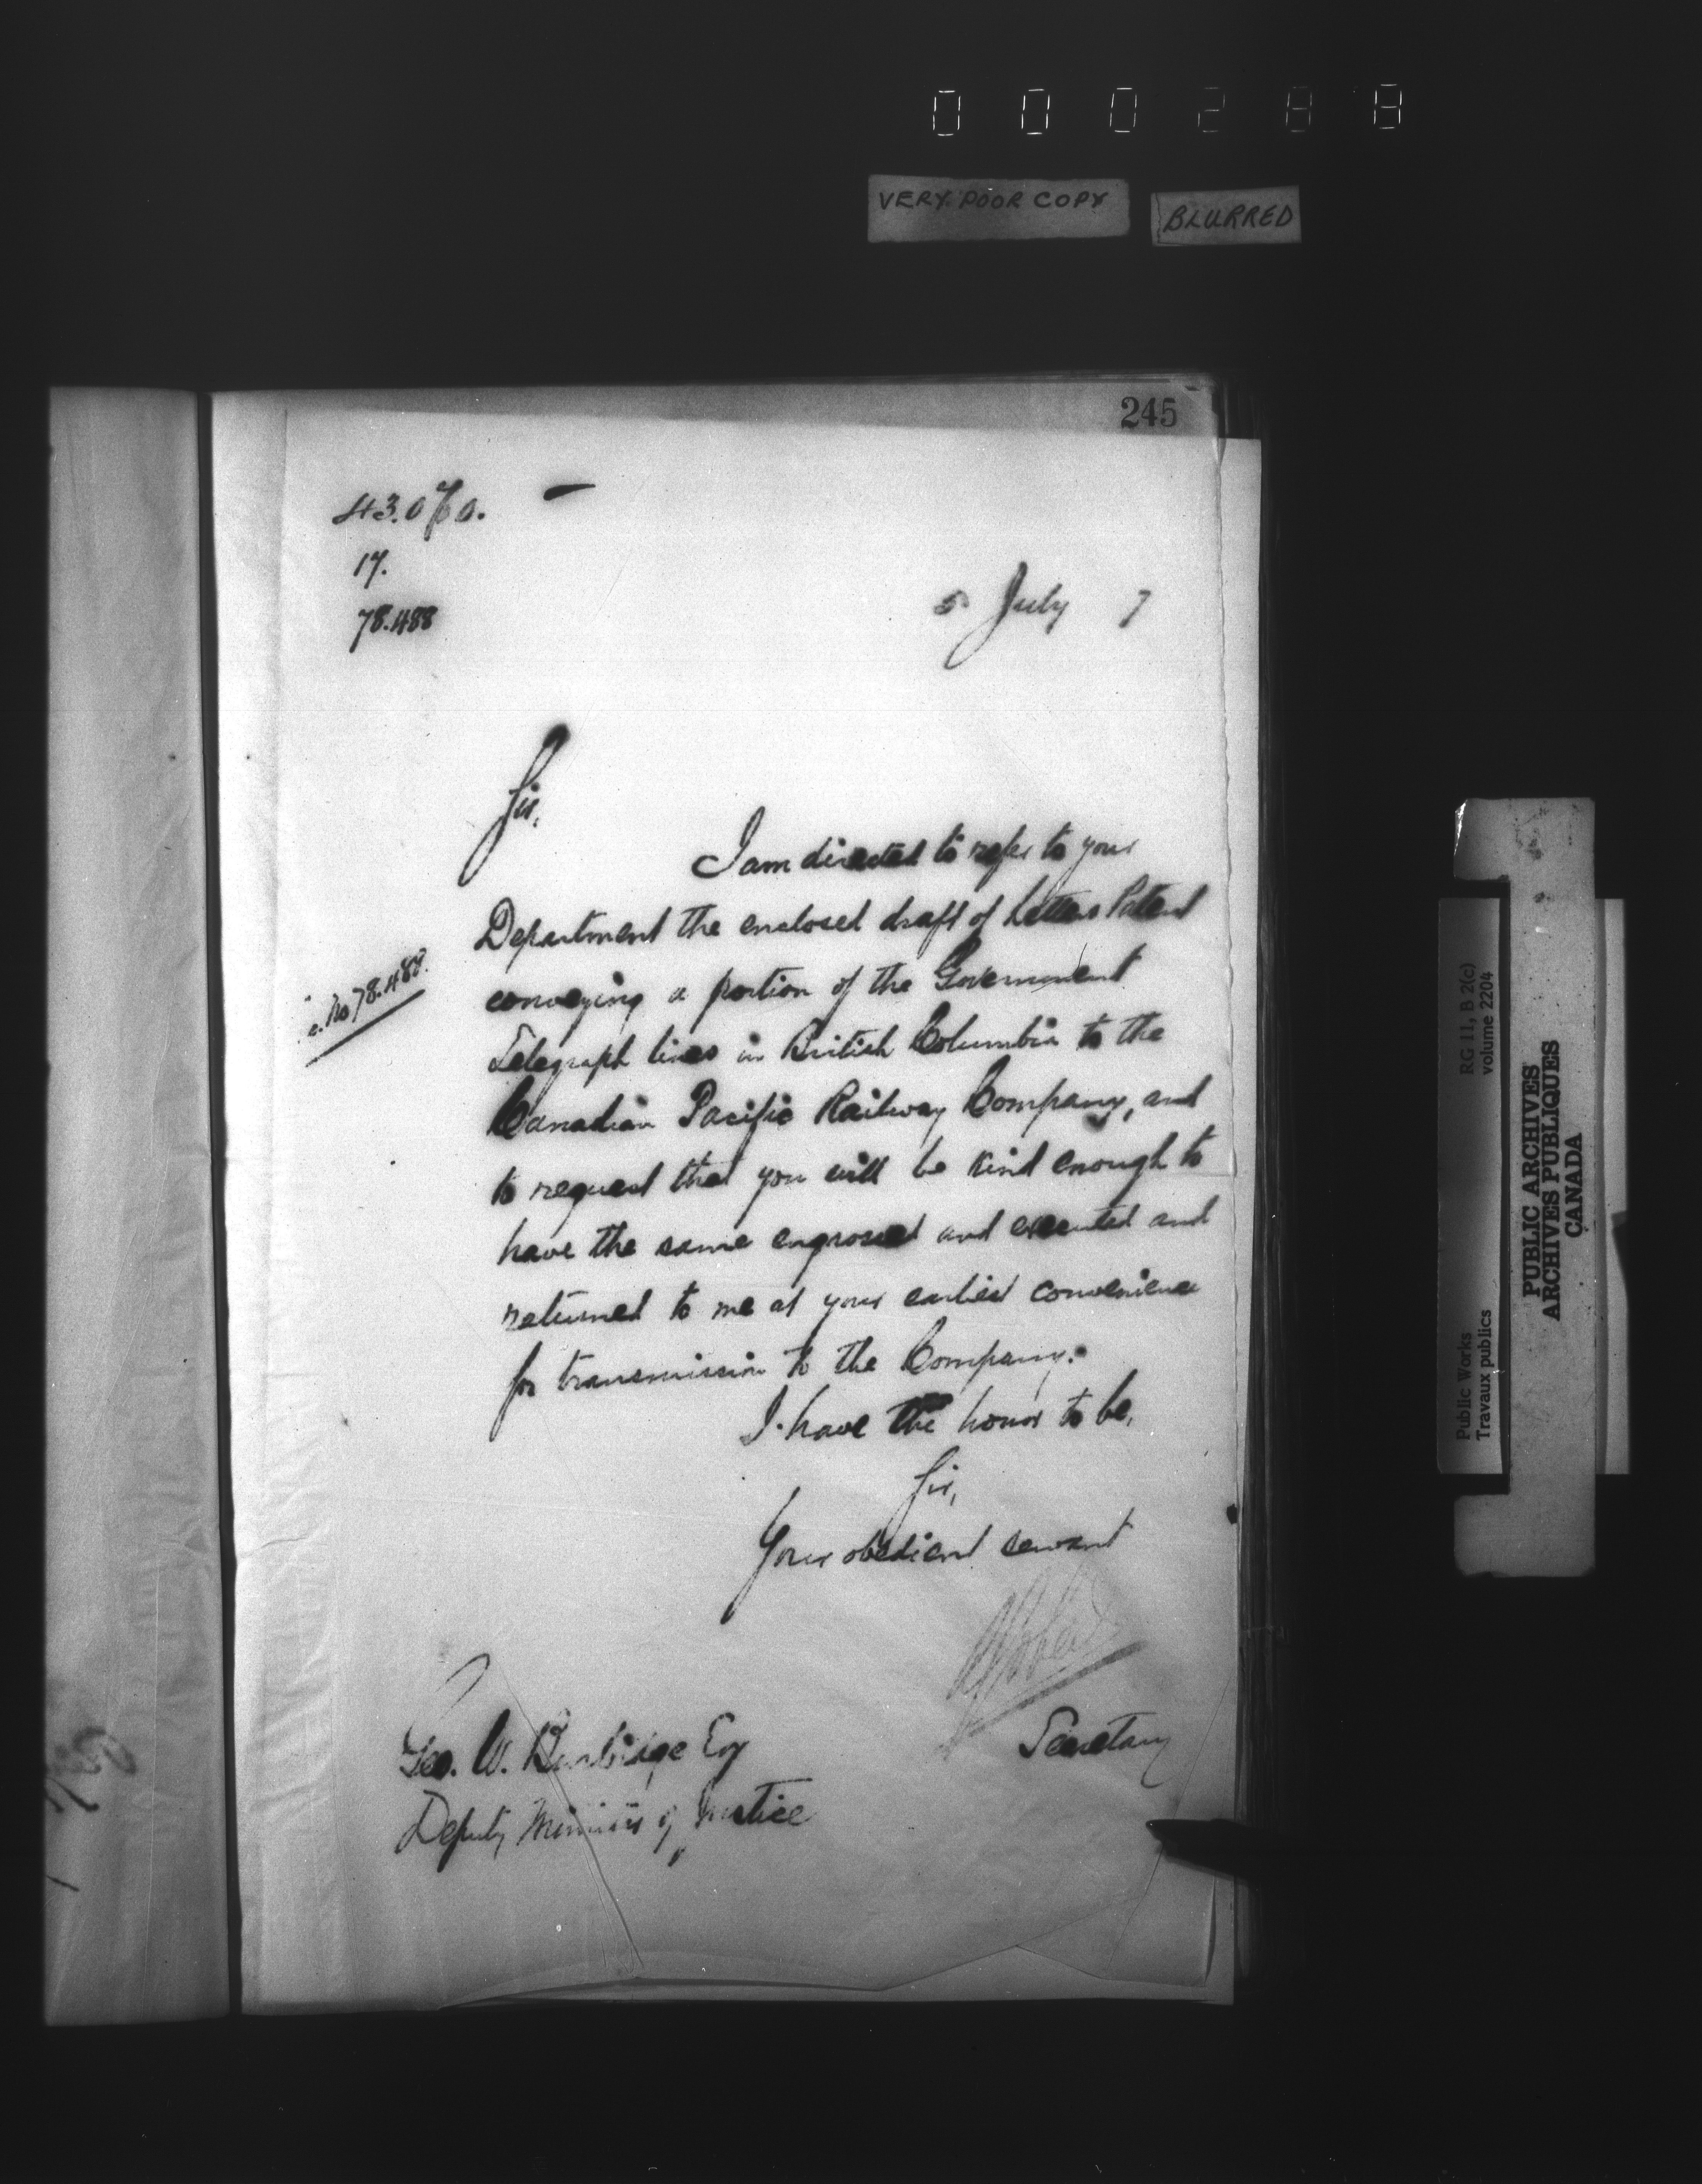 000288
VERY POOR COPY
BLURRED
245
17.
78.488
5 July 7
Sir,
I am directed to refer to your
Department the enclosed draft of Letters Patent
conveying a portion of the Government
No 78.488.
Telegraph lines in British Columbia to the
Canadian Pacific Railway Company, and
to request that you will be kind enough to
have the same engrossed and executed and
returned to me at your earliest convenience
for transmission to the Company.
I have the honor to be,
Sir,
Your obedient servant
Secretary
Geo. W. Burbidge Esq
Deputy Minister of Justice
Public Works
Travaux publics
RG 11, B 2(c)
volume 2204
PUBLIC ARCHIVES
ARCHIVES PUBLIQUES
CANADA